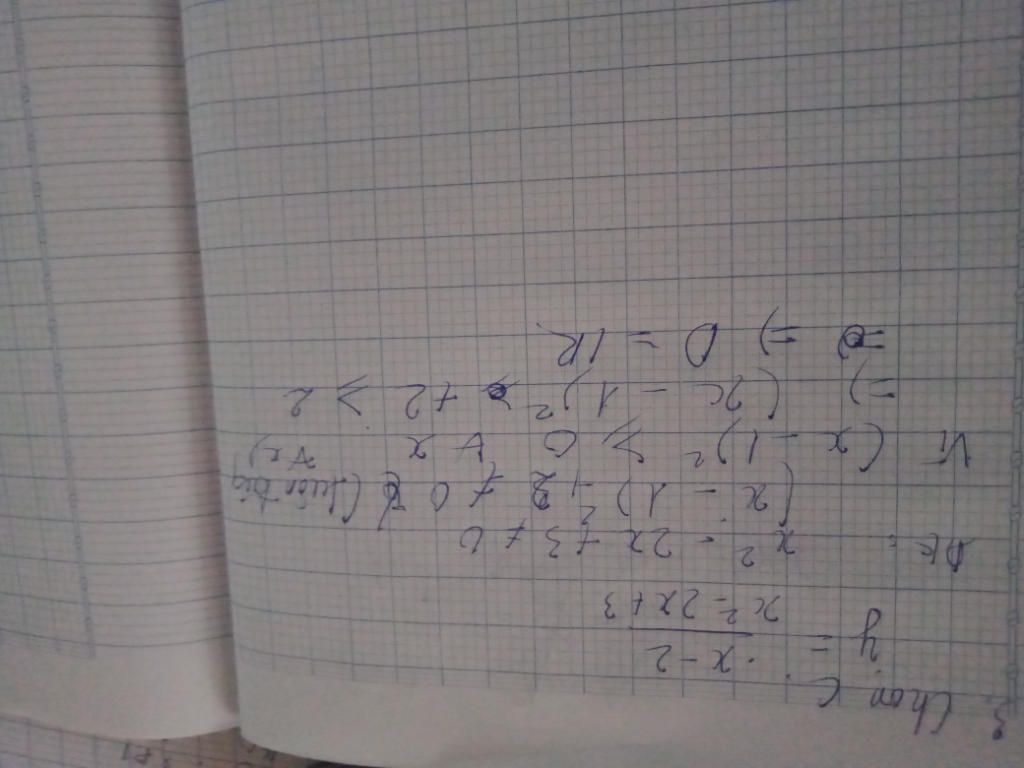 3. Chọn C
y = x - 2 / x² - 2x + 3
ĐK: x² - 2x + 3 ≠ 0
(x - 1)² + 2 ≠ 0 (luôn đúng ∀x)
Vì (x - 1)² ≥ 0 ∀ x
=> (x - 1)² + 2 ≥ 2
=> D = ℝ